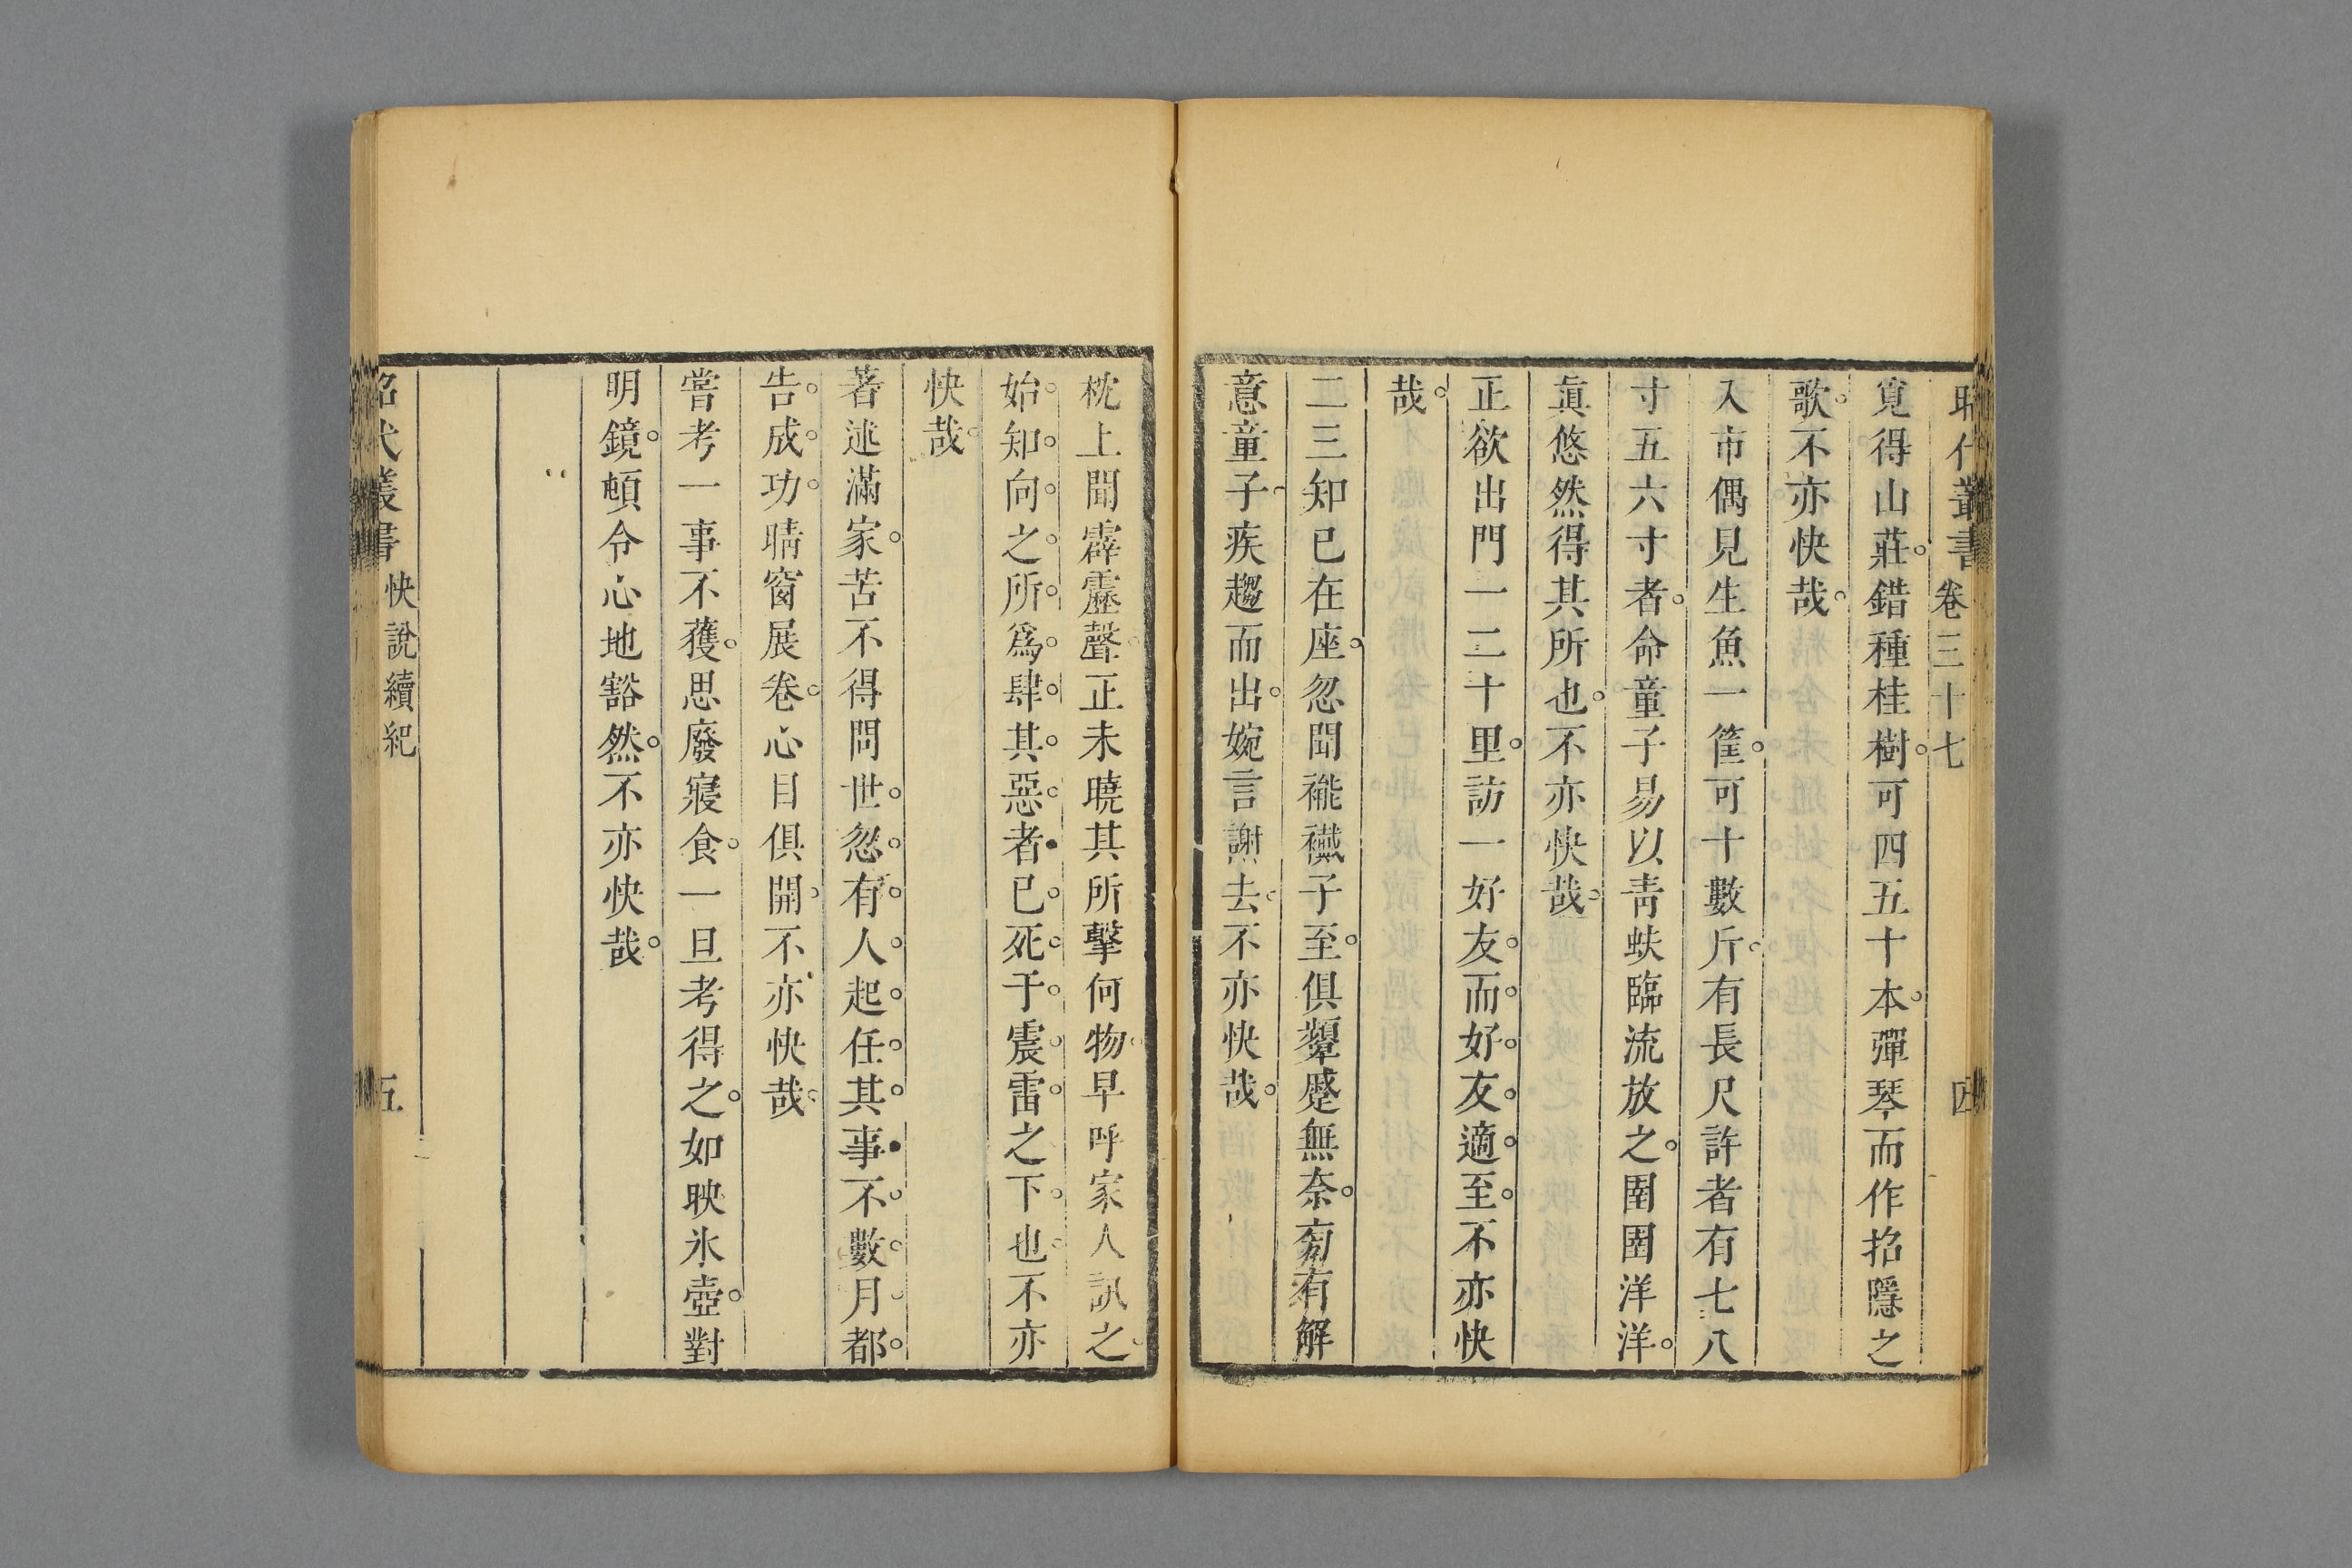 昭代叢書 卷三十七 四
覓得山莊錯種桂樹可四五十本彈琴而作招隱之
歌不亦快哉
入市偶見生魚一筐可十數斤有長尺許者有七八
寸五六寸者命童子易以靑蚨臨流放之圉圉洋洋
眞悠然得其所也不亦快哉
正欲出門一二十里訪一好友而好友適至不亦快
哉
二三知已在座忽聞褦襶子至俱顰蹙無奈匄有解
意童子疾趨而出婉言謝去不亦快哉
枕上聞霹靂聲正未曉其所擊何物早呼家人訊之
始知向之所爲肆其惡者已死于震雷之下也不亦
快哉
著述滿家苦不得問世忽有人起任其事不數月都
告成功晴窗展卷心目俱開不亦快哉
嘗考一事不獲思廢寢食一旦考得之如映氷壺對
明鏡頓令心地豁然不亦快哉
昭代叢書 快說續紀 五